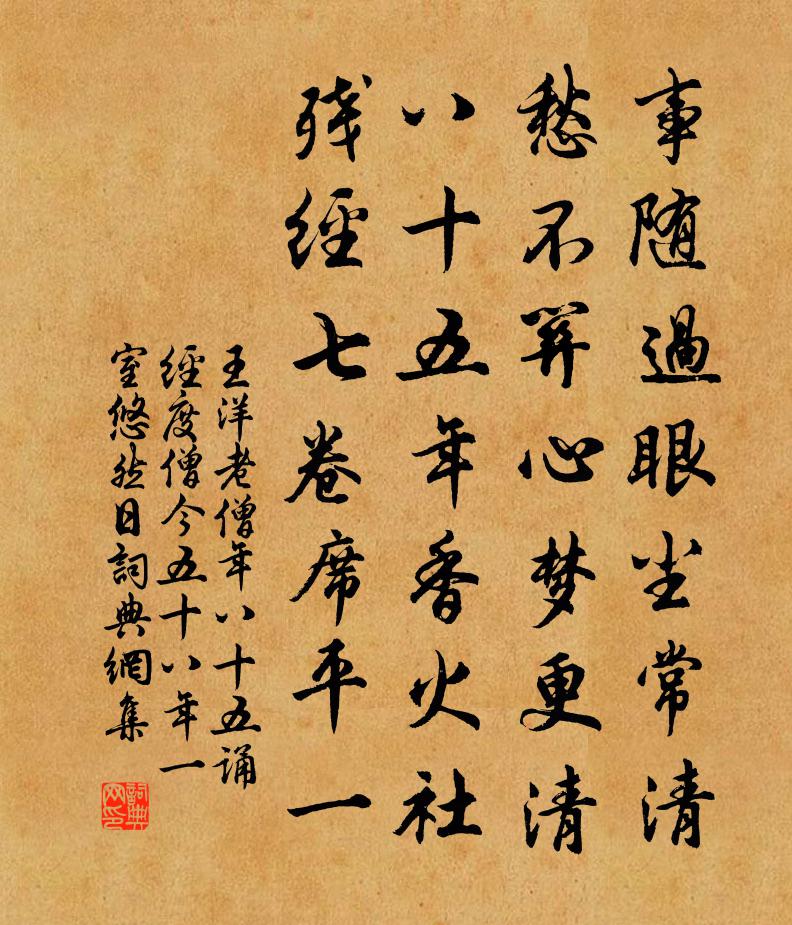 事随過眼尘常清
愁不关心梦更清
八十五年香火社
残經七卷席平一
王洋老僧年八十五誦
經度僧今五十八年一
室悠然日詞典網集
詞典网印